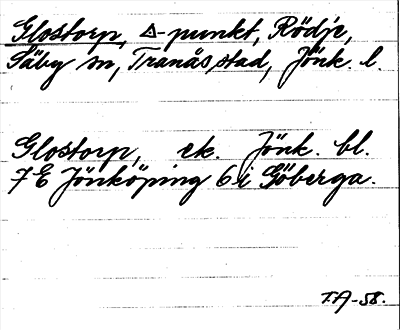 Glostorp, △-punkt, Rödje,
Säby sn, Tranås stad, Jönk. l.
Glostorp, ek. Jönk. bl.
7E Jönköping 6i Göberga.
T.A-58.